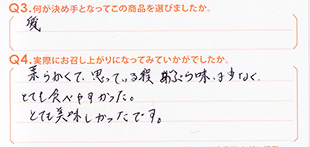 Q3.何が決め手となってこの商品を選びましたか。
Q4.実際にお召し上がりになってみていかがでしたか。
柔らかくて、思っている程 脂っぽい味は少なく
とても食べやすかった。
とても美味しかったです。